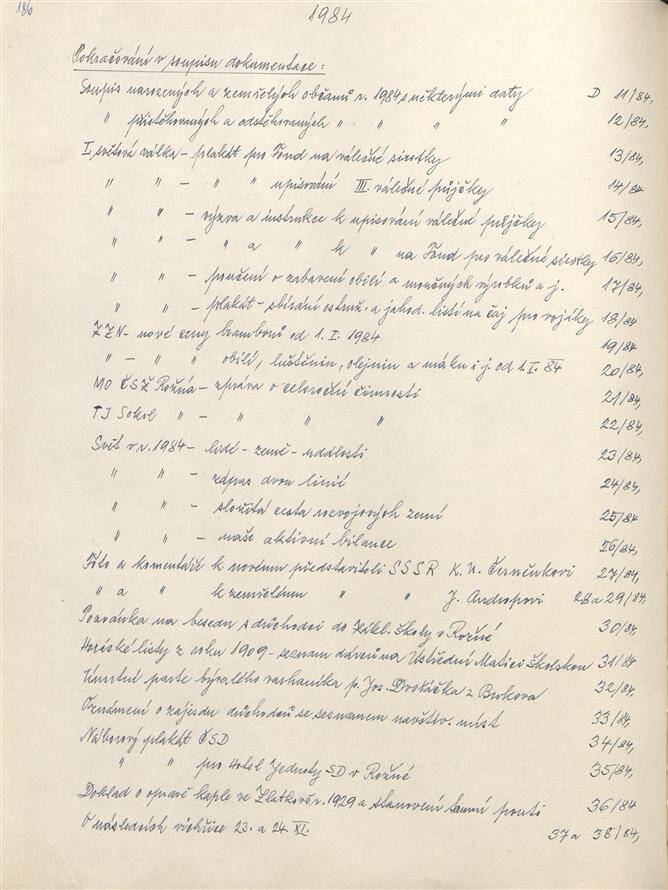 186
1984
Pokračování v soupisu dokumentace:
Soupis narozených a zemřelých občanů r. 1984 s některými daty D 11/84,
" přistěhovaných a odstěhovaných " " " " 12/84,
I. světová válka - plakát pro Fond na válečné sirotky 13/84,
" " - " " upisování III. válečné půjčky 14/84
" " - výzva a instrukce k upisování válečné půjčky 15/84,
" " - " a " k " na Fond pro válečné sirotky 16/84,
" " - poučení o zabavení obilí a moučných výrobků a j. 17/84,
" " - plakát - sbírání ostruž. a jahod. listí na čaj pro vojáky 18/84
ZZN - nové ceny bramborů od 1. I. 1984 19/84
" - " " obilí, luštěnin, olejnin a máku i j. od 1. I. 84 20/84,
MO ČSŽ Rožná - zpráva o celoroční činnosti 21/84,
TJ Sokol " - " " " 22/84,
Svět v r. 1984 - lidé - země - události 23/84,
" " - zápas dvou linií 24/84,
" " - složitá cesta rozvojových zemí 25/84
" " - naše aktivní bilance 26/84,
Foto a komentáře k novému představiteli SSSR K. U. Černěnkovi 27/84,
" a " k zemřelému " " J. Andropovi 28 a 29/84,
Pozvánka na besedu s důchodci do Zákl. školy v Rožné 30/84,
Horácké listy z roku 1909 - seznam dárců na Ústřední Matici Školskou 31/84
Úmrtní parte bývalého varhaníka p. Jos. Dvořáčka z Bukova 32/84,
Oznámení o zájezdu důchodců se seznamem navštív. míst 33/84,
Náborový plakát ČSD 34/84,
" " pro Hotel Jednoty SD v Rožné 35/84,
Doklad o opravě kaple ve Zlatkově r. 1929 a stanovení tamní pouti 36/84
O následcích vichřice 23. a 24. XI. 37 a 38/84,